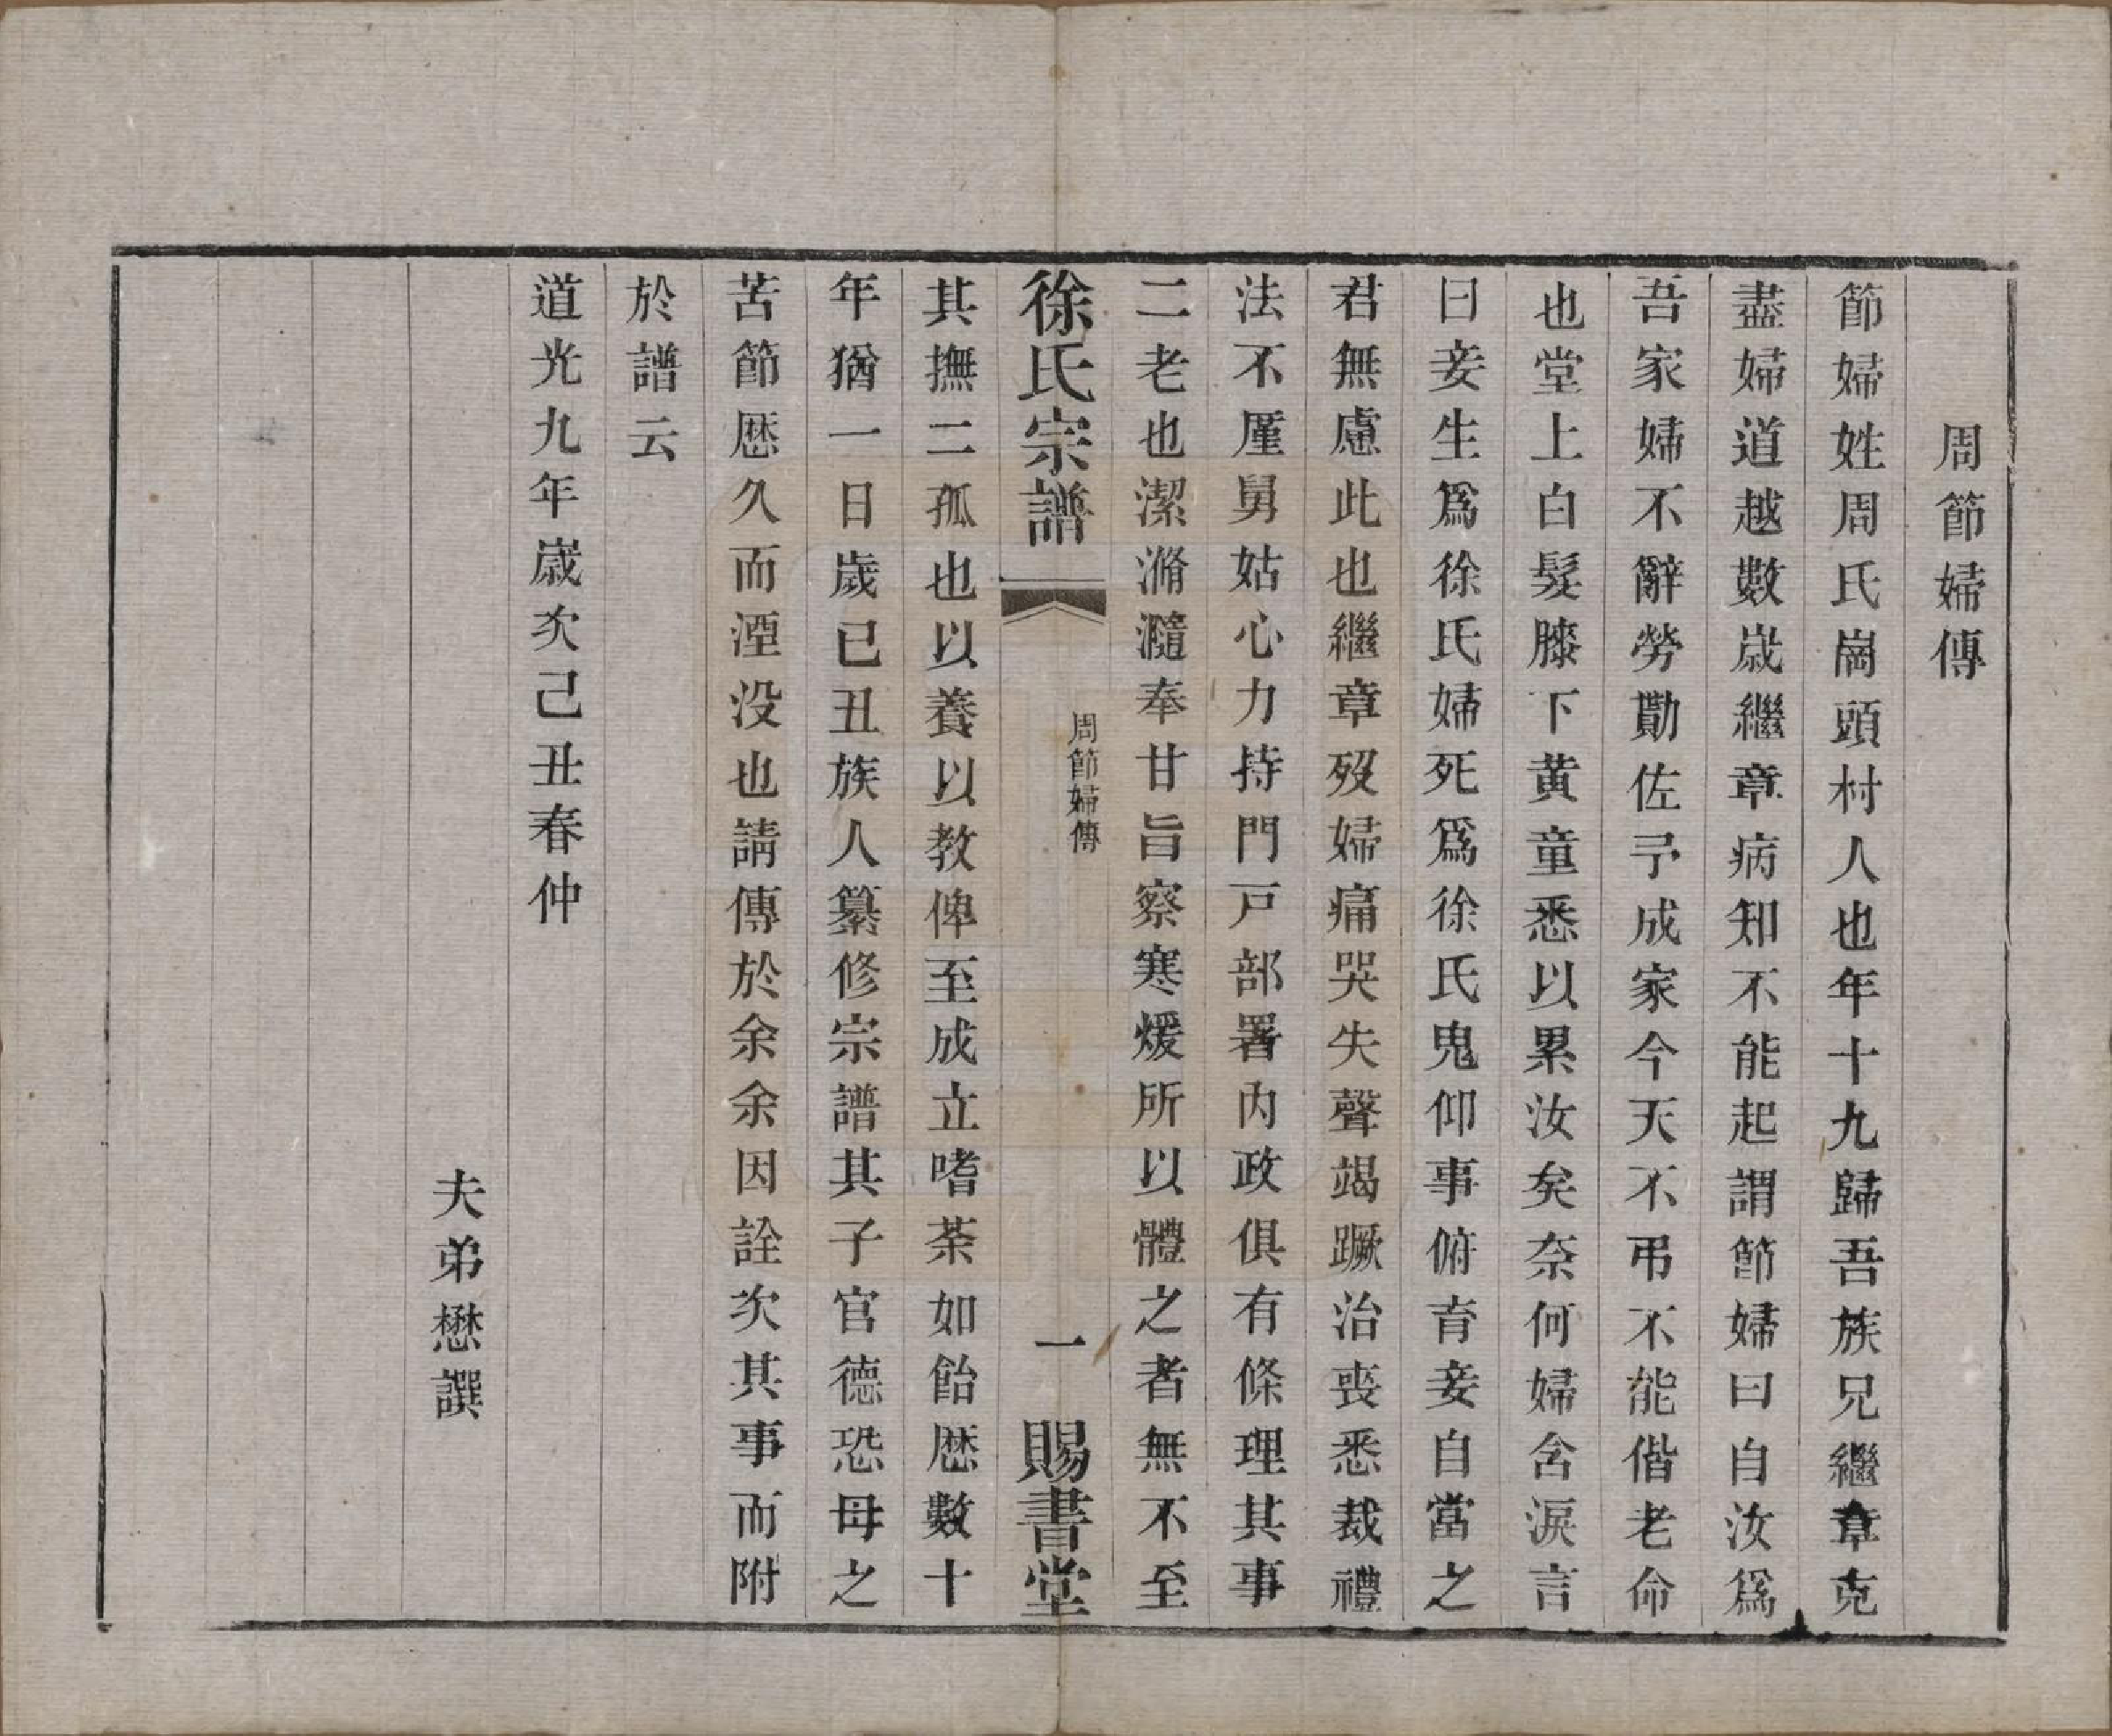 周節婦傳
節婦姓周氏崗頭村人也年十九歸吾族兄繼章克
盡婦道越數歲繼章病知不能起謂節婦曰自汝爲
吾家婦不辭勞勩佐予成家今天不弔不能偕老命
也堂上白髮膝下黄童悉以累汝矣奈何婦含淚言
曰妾生爲徐氏婦死爲徐氏鬼仰事俯育妾自當之
君無慮此也繼章歿婦痛哭失聲竭蹶治喪悉裁禮
法不厪舅姑心力持門戸部署内政俱有條理其事
二老也潔滫瀡奉甘旨察寒煖所以體之者無不至
徐氏宗譜
周節婦傳
一
賜書堂
其撫二孤也以養以教俾至成立嗜荼如飴厯數十
年猶一日歲已丑族人纂修宗譜其子官德恐母之
苦節厯久而湮没也請傳於余余因詮次其事而附
於譜云
道光九年歲次己丑春仲
夫弟懋譔